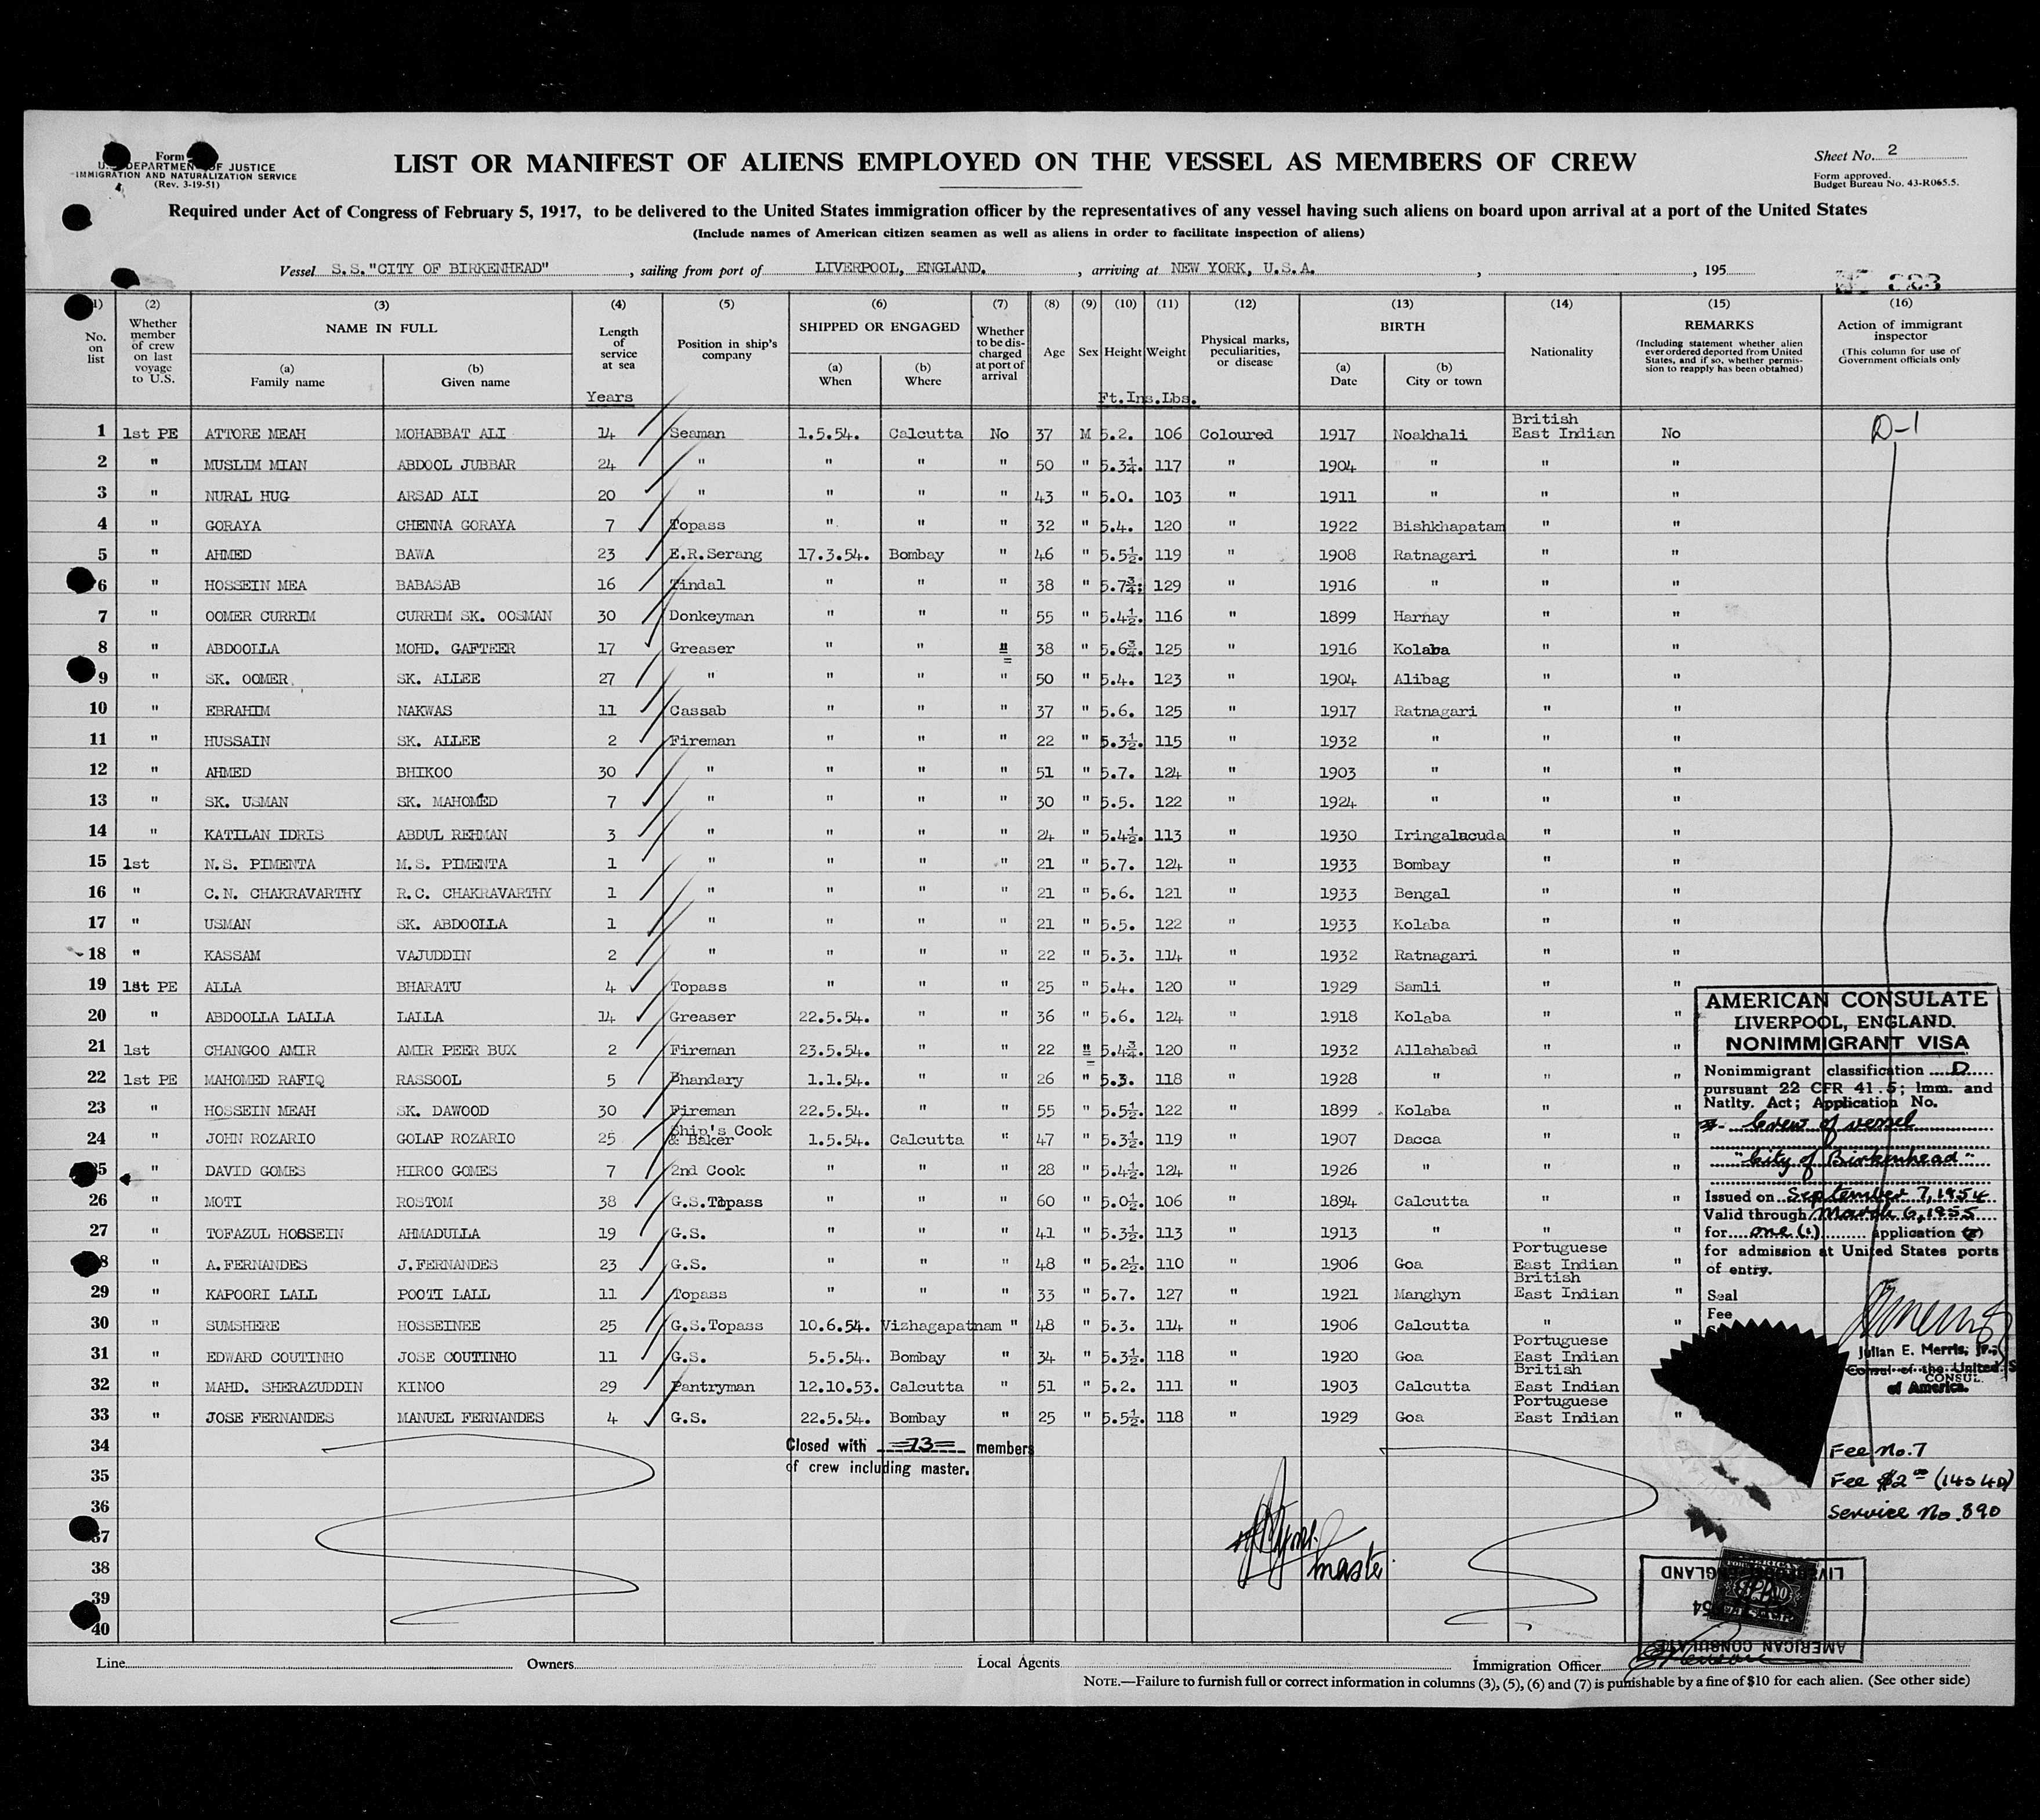 Form
U. DEPARTMENT OF JUSTICE
IMMIGRATION AND NATURALIZATION SERVICE
(Rev. 3-19-51)
LIST OR MANIFEST OF ALIENS EMPLOYED ON THE VESSEL AS MEMBERS OF CREW
Sheet No. 2
Form approved.
Budget Bureau No. 43-R065.5.
Required under Act of Congress of February 5, 1917, to be delivered to the United States immigration officer by the representatives of any vessel having such aliens on board upon arrival at a port of the United States
(Include names of American citizen seamen as well as aliens in order to facilitate inspection of aliens)
Vessel S.S."CITY OF BIRKENHEAD", sailing from port of LIVERPOOL, ENGLAND., arriving at NEW YORK, U.S.A., , 195
(1) (2) (3) (4) (5) (6) (7) (8) (9) (10) (11) (12) (13) (14) (15) (16)
No. on list
Whether member of crew on last voyage to U.S.
NAME IN FULL
(a) Family name
(b) Given name
Length of service at sea
Years
Position in ship's company
SHIPPED OR ENGAGED
(a) When
(b) Where
Whether to be discharged at port of arrival
Age
Sex
Height
Weight
Ft.Ins.Lbs.
Physical marks, peculiarities, or disease
BIRTH
(a) Date
(b) City or town
Nationality
REMARKS
(Including statement whether alien ever ordered deported from United States, and if so, whether permission to reapply has been obtained)
Action of immigrant inspector
(This column for use of Government officials only
1 1st PE ATTORE MEAH MOHABBAT ALI 14 Seaman 1.5.54. Calcutta No 37 M 5.2. 106 Coloured 1917 Noakhali British East Indian No D-1
2 " MUSLIM MIAN ABDOOL JUBBAR 24 " " " " 50 " 5.3¼. 117 " 1904 " " "
3 " NURAL HUG ARSAD ALI 20 " " " " 43 " 5.0. 103 " 1911 " " "
4 " GORAYA CHENNA GORAYA 7 Topass " " " 32 " 5.4. 120 " 1922 Bishkhapatam " "
5 " AHMED BAWA 23 E.R.Serang 17.3.54. Bombay " 46 " 5.5½. 119 " 1908 Ratnagari " "
6 " HOSSEIN MEA BABASAB 16 Tindal " " " 38 " 5.7¾. 129 " 1916 " " "
7 " OOMER CURRIM CURRIM SK. OOSMAN 30 Donkeyman " " " 55 " 5.4½. 116 " 1899 Harnay " "
8 " ABDOOLLA MOHD. GAFTEER 17 Greaser " " " 38 " 5.6¾. 125 " 1916 Kolaba " "
9 " SK. OOMER. SK. ALLEE 27 " " " " 50 " 5.4. 123 " 1904 Alibag " "
10 " EBRAHIM NAKWAS 11 Cassab " " " 37 " 5.6. 125 " 1917 Ratnagari " "
11 " HUSSAIN SK. ALLEE 2 Fireman " " " 22 " 5.3½. 115 " 1932 " " "
12 " AHMED BHIKOO 30 " " " " 51 " 5.7. 124 " 1903 " " "
13 " SK. USMAN SK. MAHOMED 7 " " " " 30 " 5.5. 122 " 1924 " " "
14 " KATILAN IDRIS ABDUL REHMAN 3 " " " " 24 " 5.4½. 113 " 1930 Iringalucuda " "
15 1st N.S. PIMENTA M.S. PIMENTA 1 " " " " 21 " 5.7. 124 " 1933 Bombay " "
16 " C.N. CHAKRAVARTHY R.C. CHAKRAVARTHY 1 " " " " 21 " 5.6. 121 " 1933 Bengal " "
17 " USMAN SK. ABDOOLLA 1 " " " " 21 " 5.5. 122 " 1933 Kolaba " "
18 " KASSAM VAJUDDIN 2 " " " " 22 " 5.3. 114 " 1932 Ratnagari " "
19 1st PE ALLA BHARATU 4 Topass " " " 25 " 5.4. 120 " 1929 Samli " "
20 " ABDOOLLA LALLA LALLA 14 Greaser 22.5.54. " " 36 " 5.6. 124 " 1918 Kolaba " "
21 1st CHANGOO AMIR AMIR PEER BUX 2 Fireman 23.5.54. " " 22 " 5.4¾. 120 " 1932 Allahabad " "
22 1st PE MAHOMED RAFIQ RASSOOL 5 Bhandary 1.1.54. " " 26 " 5.3. 118 " 1928 " " "
23 " HOSSEIN MEAH SK. DAWOOD 30 Fireman 22.5.54. " " 55 " 5.5½. 122 " 1899 Kolaba " "
24 " JOHN ROZARIO GOLAP ROZARIO 25 Ship's Cook & Baker 1.5.54. Calcutta " 47 " 5.3½. 119 " 1907 Dacca " "
25 " DAVID GOMES HIROO GOMES 7 2nd Cook " " " 28 " 5.4½. 124 " 1926 " " "
26 " MOTI ROSTOM 38 G.S.Topass " " " 60 " 5.0½. 106 " 1894 Calcutta " "
27 " TOFAZUL HOSSEIN AHMADULLA 19 G.S. " " " 41 " 5.3½. 113 " 1913 " " "
28 " A.FERNANDES J.FERNANDES 23 G.S. " " " 48 " 5.2½. 110 " 1906 Goa Portuguese East Indian "
29 " KAPOORI LALL POOTI LALL 11 Topass " " " 33 " 5.7. 127 " 1921 Manghyn British East Indian "
30 " SUMSHERE HOSSEINEE 25 G.S.Topass 10.6.54. Vizhagapatnam " 48 " 5.3. 114 " 1906 Calcutta " "
31 " EDWARD COUTINHO JOSE COUTINHO 11 G.S. 5.5.54. Bombay " 34 " 5.3½. 118 " 1920 Goa Portuguese East Indian
32 " MAHD. SHERAZUDDIN KINOO 29 Pantryman 12.10.53. Calcutta " 51 " 5.2. 111 " 1903 Calcutta British East Indian
33 " JOSE FERNANDES MANUEL FERNANDES 4 G.S. 22.5.54. Bombay " 25 " 5.5½. 118 " 1929 Goa Portuguese East Indian "
34
35
36
37
38
39
40
Closed with 73 members
of crew including master.
Master
AMERICAN CONSULATE
LIVERPOOL, ENGLAND.
NONIMMIGRANT VISA
Nonimmigrant classification D
pursuant 22 CFR 41.5; Imm. and
Natlty. Act; Application No.
Crew of vessel
"City of Birkenhead"
Issued on September 7, 1954
Valid through March 6, 1955
for one (1) application (s)
for admission at United States ports
of entry.
Seal
Fee
Julian E. Merris, Jr.,
Consul of the United S
CONSUL
of America.
Fee No. 7
Fee $2.00 (14s 4d)
Service No. 890
AMERICAN CONSULATE
LIVERPOOL ENGLAND
Line Owners Local Agents Immigration Officer
NOTE.—Failure to furnish full or correct information in columns (3), (5), (6) and (7) is punishable by a fine of $10 for each alien. (See other side)